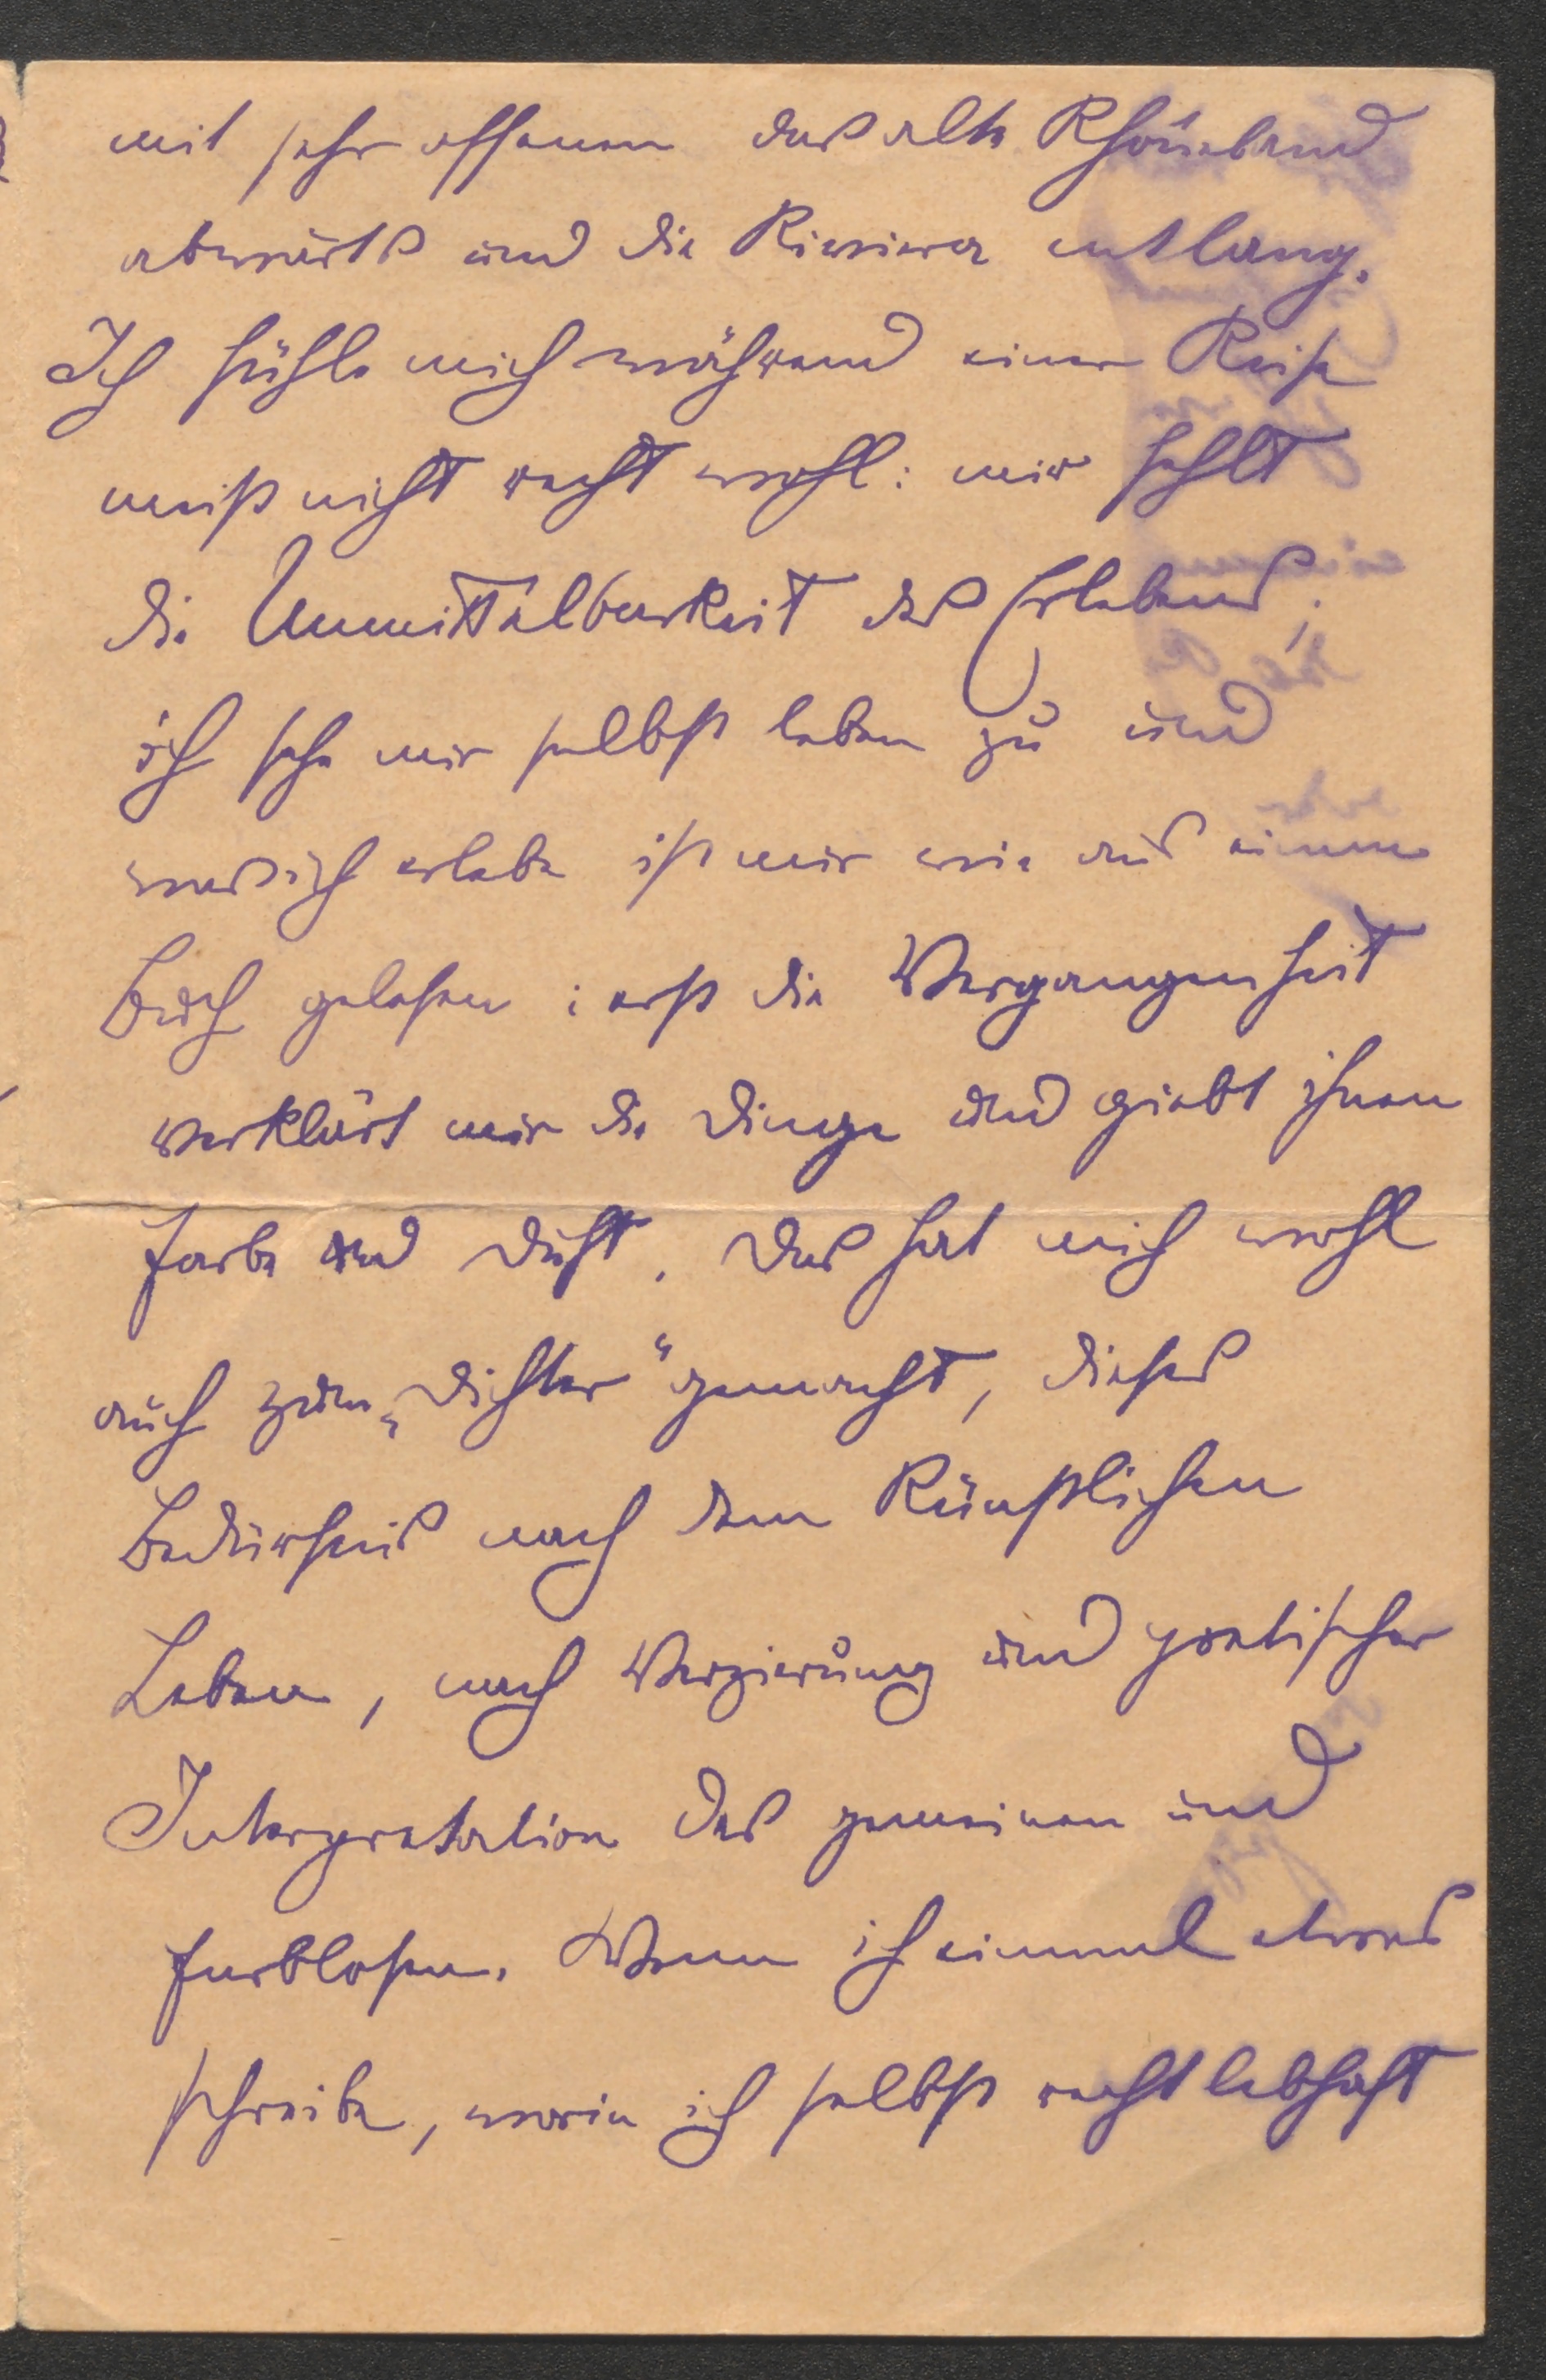 mit sehr offenen das alte Rhôneland
abwärts und die Rieviera entlang.
Ich fühle mich während einer Reise
meist nicht recht wohl: mir fehlt
die Unmittelbarkeit des Erlebens;
ich sehe mir selbst leben zu und
was ich erlebe ist mir wie aus einem
Buch gelesen; erst die Vergangenheit
verklärt mir die Dinge und giebt ihnen
Farbe und Duft. Das hat mich wohl
auch zum „Dichter“ gemacht, dieses
Bedürfnis nach dem Künstlichen
Leben, nach Verzierung und poetischer
Interpretation des gemeinen und
farblosen. Wenn ich einmal etwas
schreibe, worin ich selbst recht lebhaft